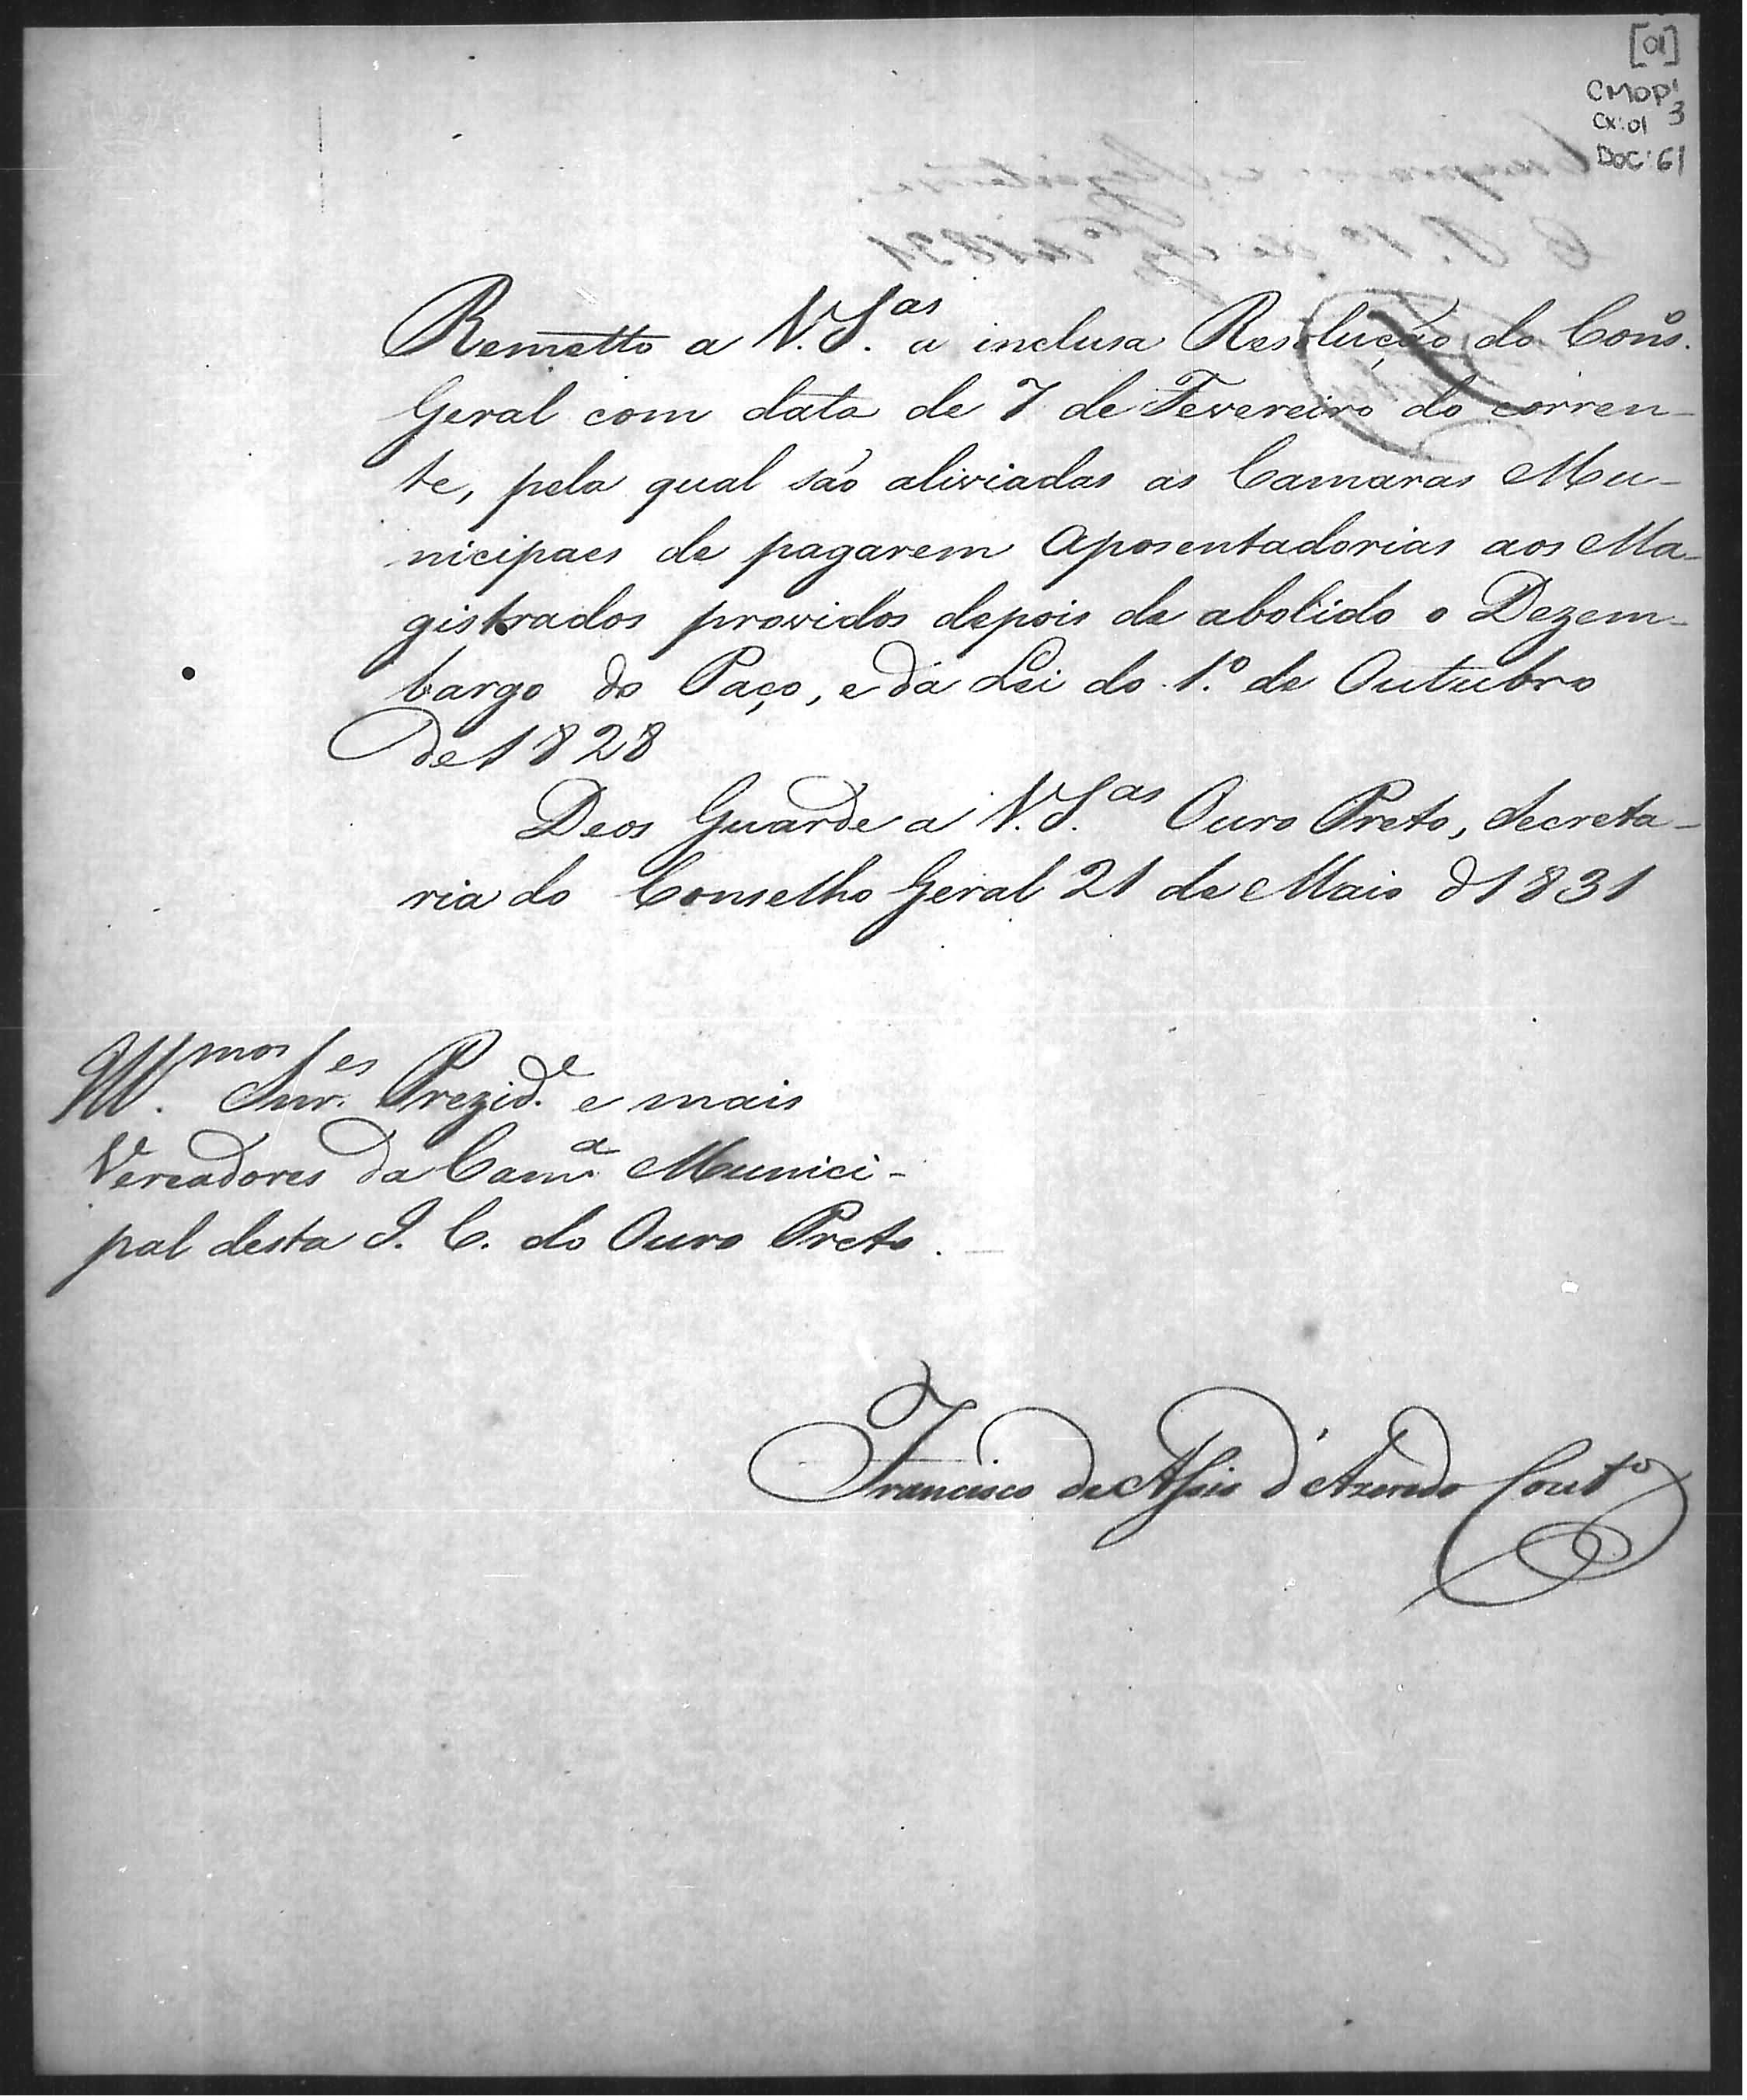 [01]
CMOP 1
3
Cx: 01
DOC: 61
Remetto a V. S.as a inclusa Resolução do Cons.o
Geral com data de 7 de Fevereiro do corren-
te, pela qual são aliviadas as Camaras Mu-
nicipaes de pagarem aposentadorias aos Ma-
gistrados providos depois de abolido o Dezem-
bargo do Paço, e da Lei do 1.º de Outubro
de 1828
Deos Guarde a V. S.as Ouro Preto, Secreta-
ria do Conselho Geral 21 de Maio d 1831
Ill.mos Snr.es Prezid.e e mais
Vereadores da Cam.a Munici-
pal desta I. C. do Ouro Preto.
Francisco de Assis d'Azeredo Cout.o